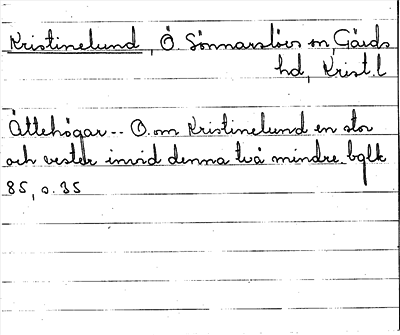 Kristinelund, Ö Sönnarslövs sn, Gärds
hd, Krist.l
Ättehögar -- O. om Kristinelund en stor
och vester invid denna två mindre. bglk
85, s. 35